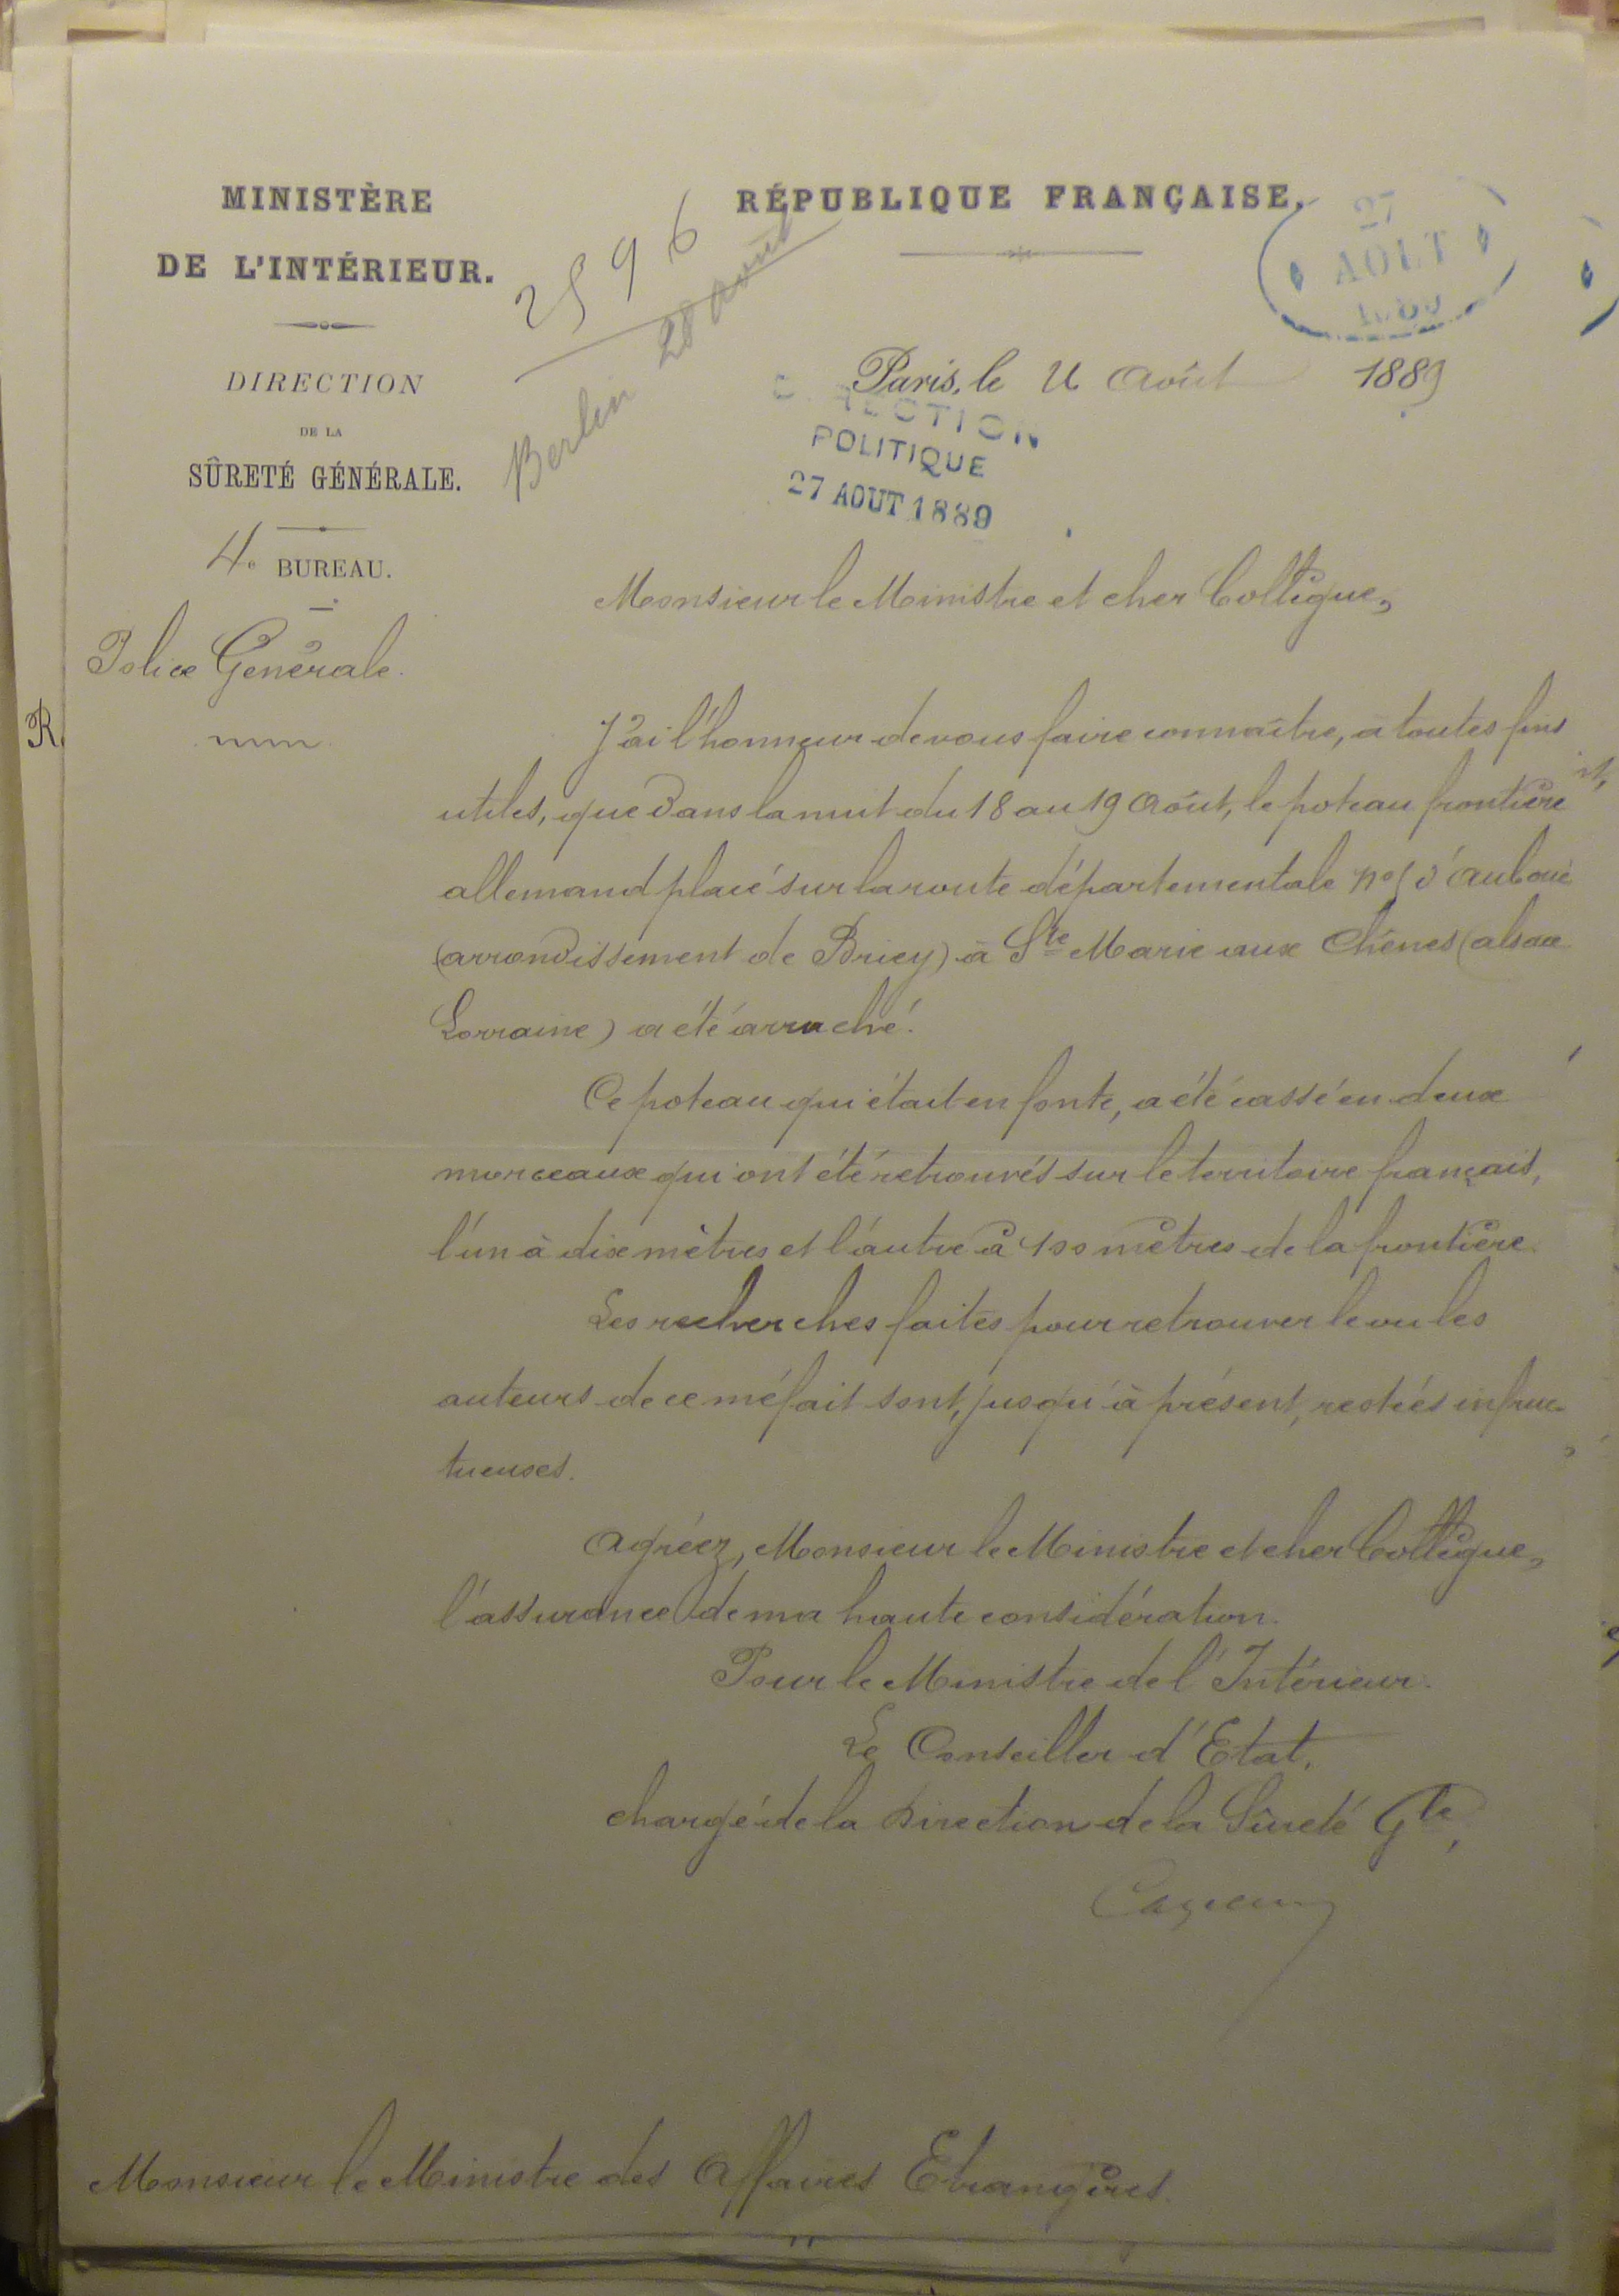 MINISTÈRE
DE L'INTÉRIEUR.
DIRECTION
DE LA
SÛRETÉ GÉNÉRALE.
4e BUREAU.
Police Générale.
RÉPUBLIQUE FRANÇAISE.
2596
Berlin 28 août
27
AOUT
Paris, le août 1889
DIRECTION
POLITIQUE
27 AOUT 1889
Monsieur le Ministre et cher Collègue,
J'ai l'honneur de vous faire connaître, à toutes fins
utiles, que dans la nuit du 18 au 19 août, le poteau frontière
allemand placé sur la route départementale no d'Auboué
(arrondissement de Briey) à Ste Marie aux Chênes (alsace
Lorraine) a été arraché.
Ce poteau qui était en fonte, a été cassé en deux
morceaux qui ont été retrouvés sur le territoire français,
l'un à dix mètres et l'autre à 100 mètres de la frontière.
Les recherches faites pour retrouver le ou les
auteurs de ce méfait sont, jusqu'à présent, restées infruc-
tueuses.
Agréez, Monsieur le Ministre et cher Collègue,
l'assurance de ma haute considération.
Pour le Ministre de l'Intérieur.
Le Conseiller d'Etat,
chargé de la Direction de la Sûreté Gle,
Monsieur le Ministre des Affaires Etrangères.
R.